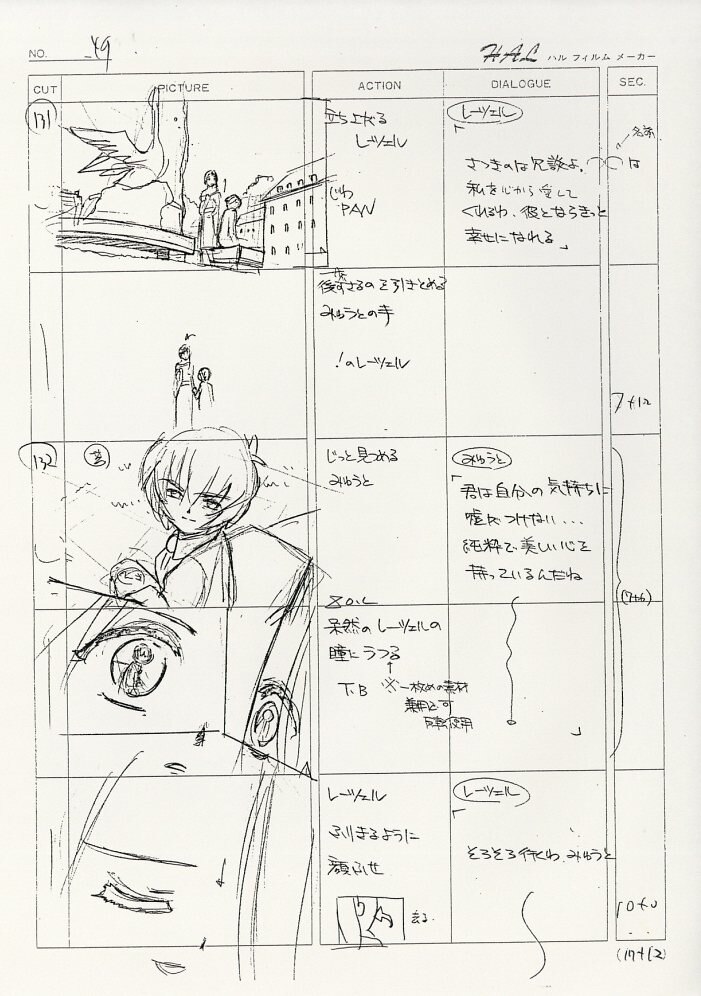 NO. 49
HAL ハル フィルム メーカー
CUT PICTURE ACTION DIALOGUE SEC.
131
立ち上がる
レーツェル
じわ
PAN
レーツェル
「
さっきのは冗談よ。
は
私を心から愛して
くれるわ、彼とならきっと
幸せになれる」
名前
後ずさるのを引きとめる
みゅうとの手
!のレーツェル
7+12
132
じっと見つめる
みゅうと
みゅうと
「君は自分の気持ちに
嘘がつけない...
純粋で美しい心を
持っているんだね
」
呆然のレーツェルの
瞳にうつる
T.B ※一枚めの素材
兼用
使用
(7+6)
レーツェル
ふりきるように
顔ふせ
去る
レーツェル
「
そろそろ行くわ、みゅうと
10+0
(17+12)